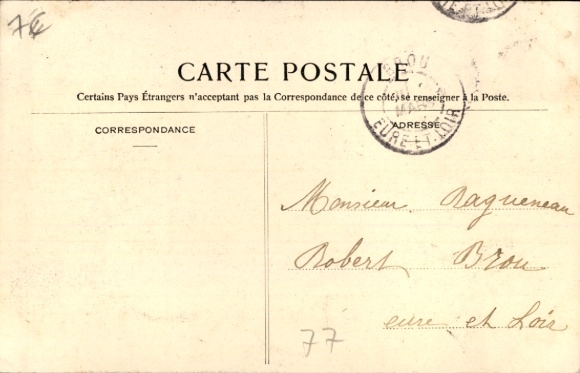 7€
CARTE POSTALE
Certains Pays Étrangers n'acceptant pas la Correspondance de ce côté, se renseigner à la Poste.
CORRESPONDANCE
ADRESSE
BROU
MARS
EURE-ET-LOIR
Monsieur Ragueneau
Robert Brou
eure et Loir
77